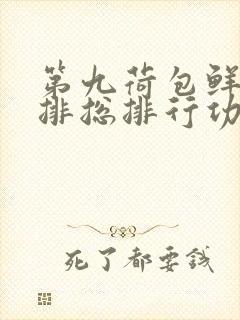 第九荷包鲜
排总排行功
死了都要钱